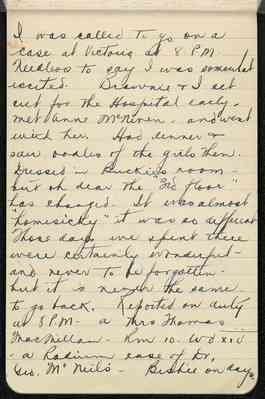 I was called to go on a
case at Victoria at 8 P.M.
Needless to say I was somewhat
excited. Brownie & I set
out for the Hospital early -
met Anne McNiven - and went
with her. Had dinner &
saw oodles of the girls then.
Dressed in Buckie's room -
but oh dear the "3rd floor"
has changed. It was almost
"homesicky" it was so different
Those days we spent there
were certainly wonderful -
and never to be forgotten -
but it is never the same
to go back. Reported on duty
at 8 P.M. - a Mrs Thomas
MacMillan - Rm 10. Wd
- a Radium case of Dr.
Geo. McNeil's - on day.